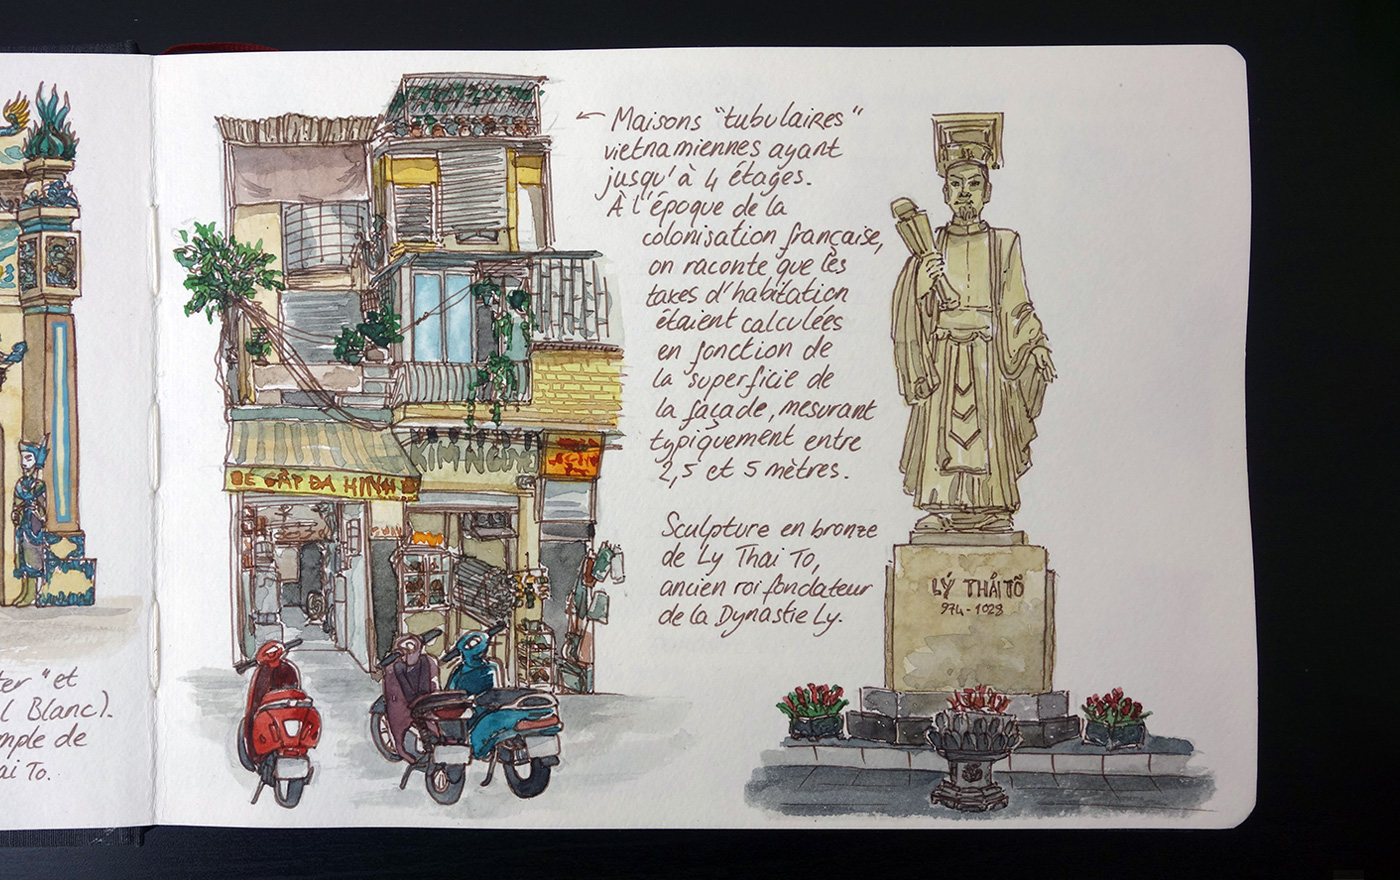 ter" et
l Blanc).
mple de
ai To.
KIM NGUNG
BE CẤP ĐA HINH
← Maisons "tubulaires"
vietnamiennes ayant
jusqu'à 4 étages.
À l'époque de la
colonisation française,
on raconte que les
taxes d'habitation
étaient calculées
en fonction de
la superficie de
la façade, mesurant
typiquement entre
2,5 et 5 mètres.
Sculpture en bronze
de Ly Thai To,
ancien roi fondateur
de la Dynastie Ly.
LÝ THÁI TÕ
974 - 1028